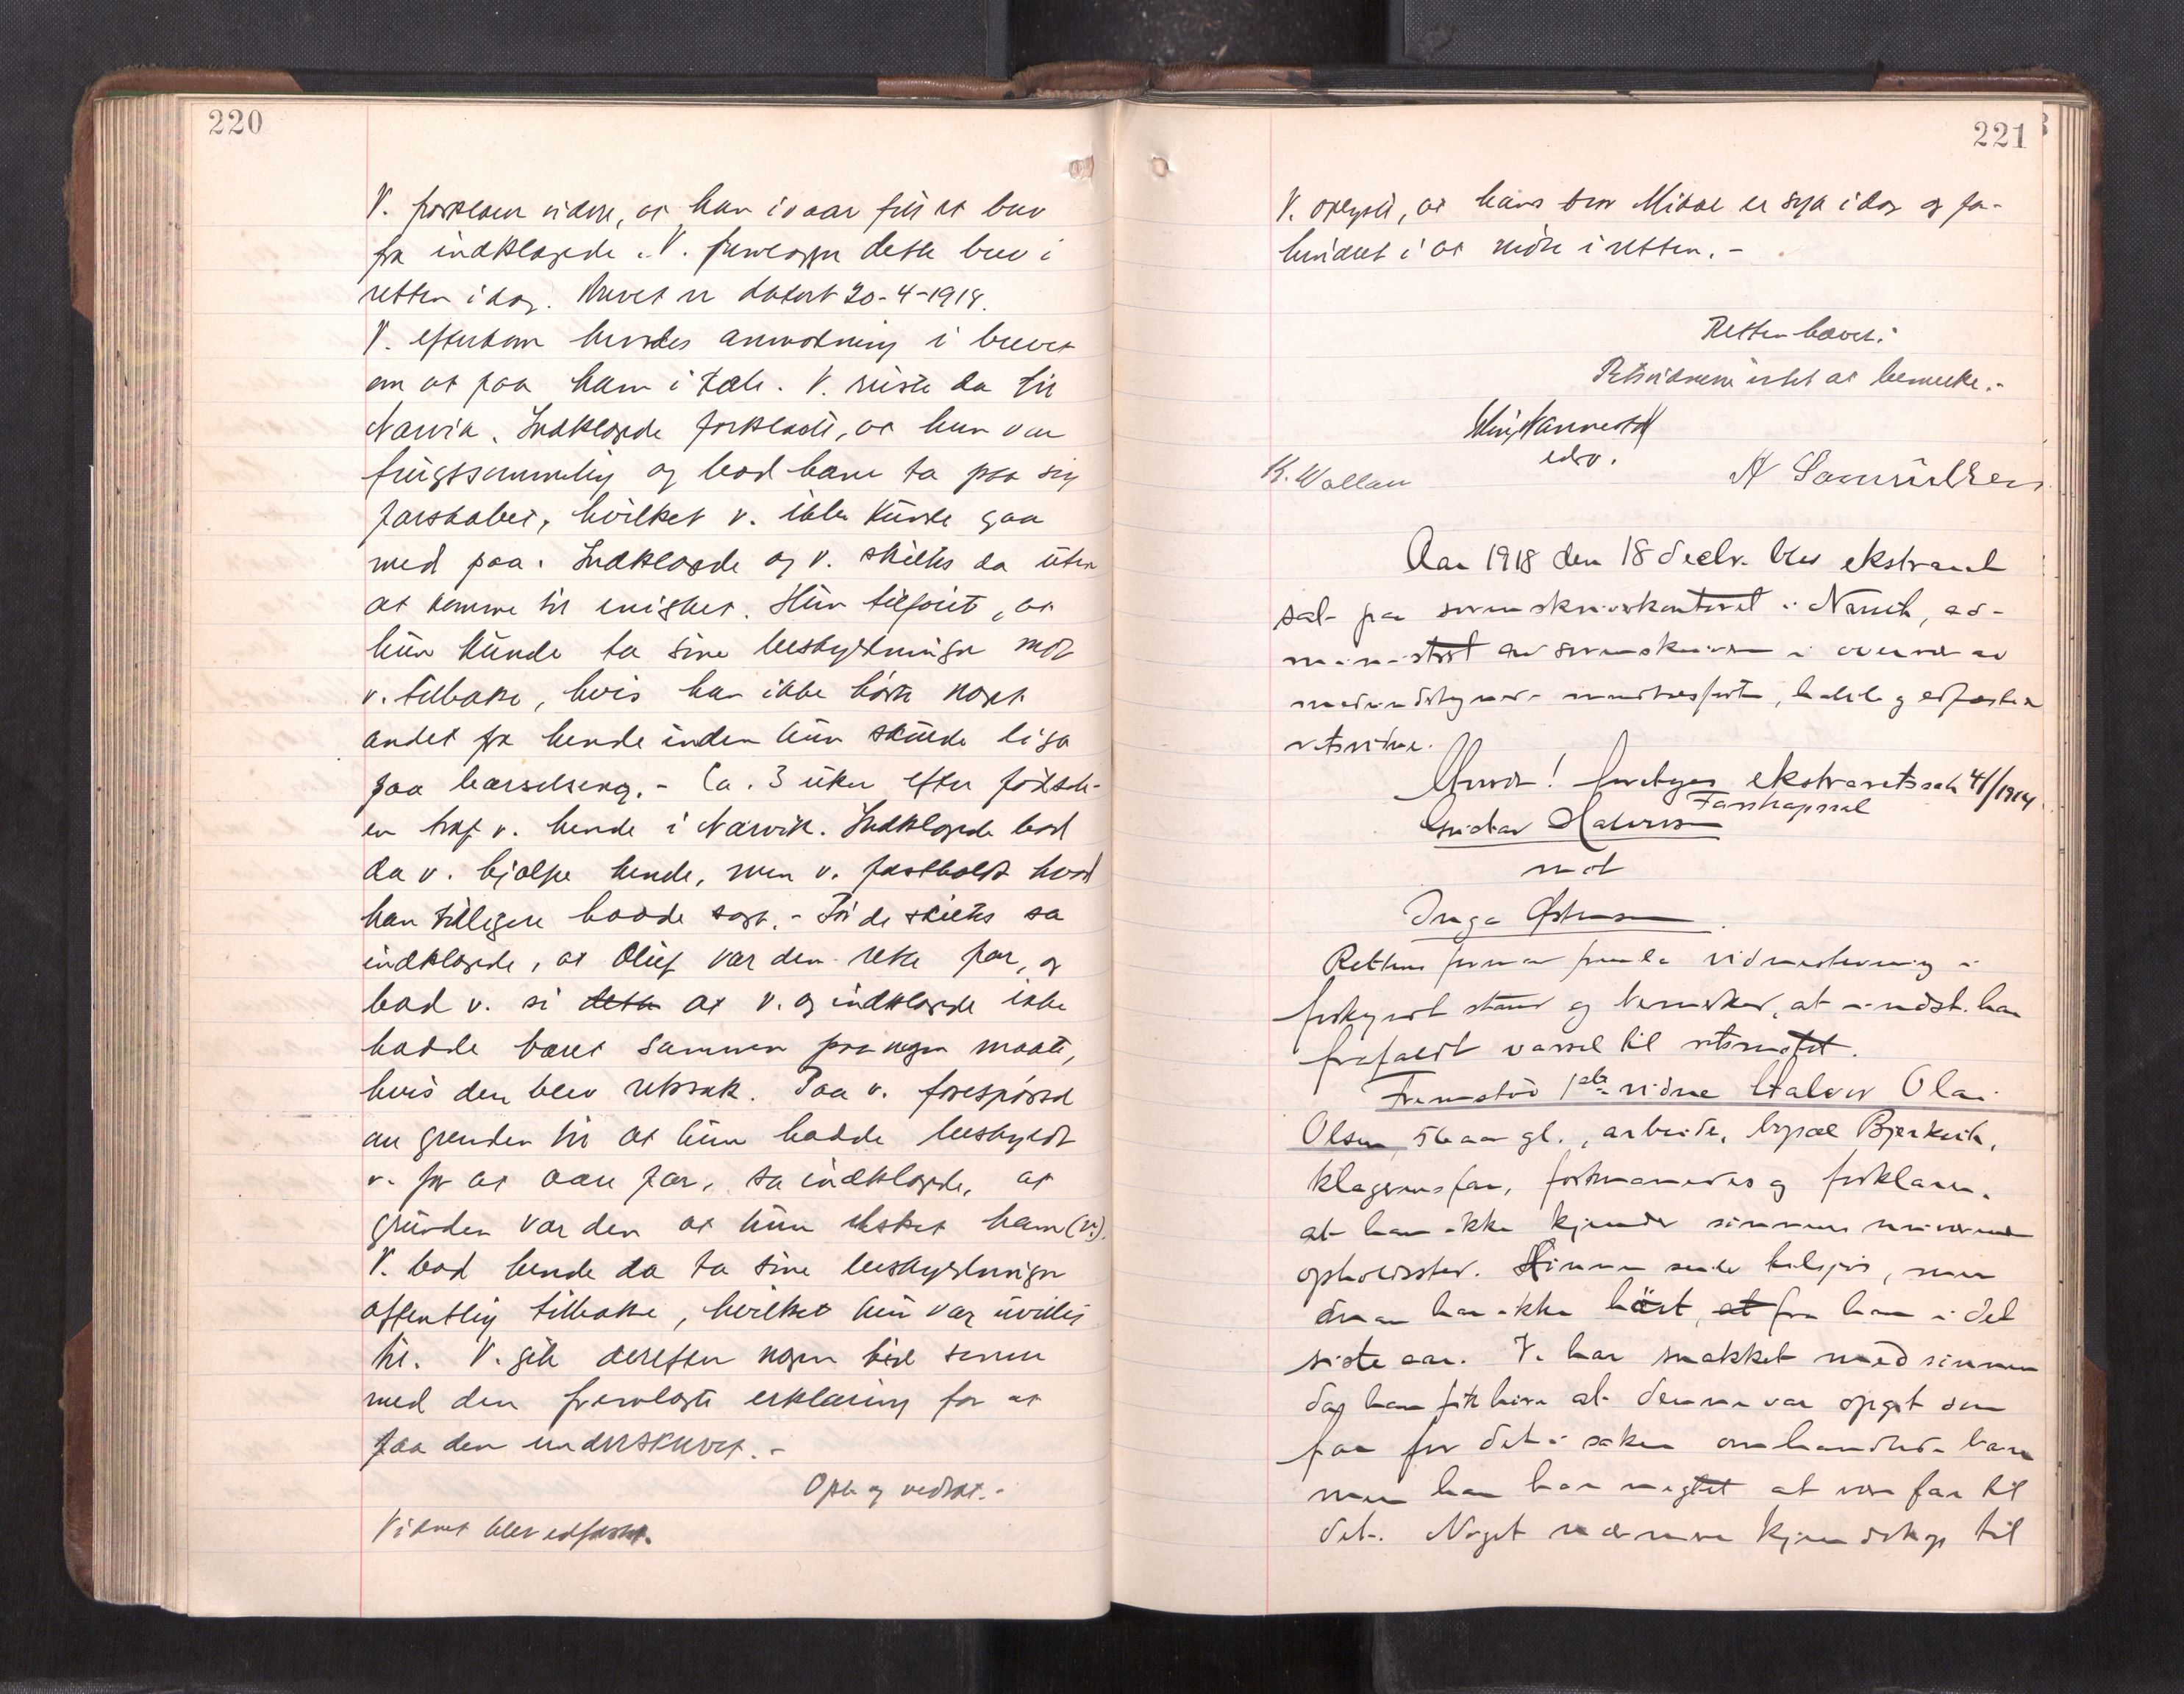 220
V. forklarer videre, at han i vaar fik et brev
fra indklagede. V. fremlægger dette brev i
retten idag. Brevet er datert 20-4-1918.
V. efterkom hendes anmodning i brevet
om at faa ham i tale. V. reiste da til
Narvik. Indklagede forklarte, at hun var
frugtsommelig og bad ham ta paa sig
farskabet, hvilket v. ikke kunde gaa
med paa. Indklagede og v. skiltes da uten
at komme til enighet. Hun tilføiet, at
hun kunde ta sine beskyldninger mot
v. tilbake, hvis han ikke hørte noget
andet fra hende inden hun skulde ligge
paa barselseng.- Ca. 3 uker efter fødsel-
en traf v. hende i Narvik. Indklagede bad
da v. hjælpe hende, men v. fastholdt hvad
han tidligere hadde sagt.- Før de skiltes sa
indklagede, at Oluf var den rette far, og
bad v. si dette at v. og indklagede ikke
hadde været sammen paa nogen maate,
hvis den blev retssak. Paa v. forespørsel
om grunden til at hun hadde beskyldt
v. for at være far, sa indklagede, at
grunden var den at hun elsket ham (v.).
V. bad hende da ta sine beskyldninger
offentlig tilbake, hvilket hun var uvillig
til. V. gik derefter nogen tid senere
med den fremlagte erklæring for at
faa den underskrevet.-
Opl. og vedtat.-
Vidnet blev edfæstet.
221
V. oplyste, at hans bror Mikal er syk idag og for-
hindret i at møte i retten.-
Retten hævet.
Retsvidnerne intet at bemerke.-
edsv.
K. Wollan
A Samuelsen
Aar 1918 den 18 decbr. blev ekstraret
sat paa sorenskriverkontoret i Narvik, ad-
ministrert av sorenskriveren i overvær av
medundertegnede mandtalsførte, kaldte og edfæstede
retsvidner.
Hvorda! foretages ekstraretssak 41/1914
Farskapssak
Halvorsen
mot
Inga Østensen
Retten fremla vidnestevning i
forkyndt stand og bemerket, at indst. har
frafaldt varsel til retsmøtet.
Fremstod 1ste vidne Halvor Olai
Olsen, 56 aar gl., arbeider, bopæl Bjerkvik,
klagerens far, formanedes og forklarer.
at han ikke kjender sønnens nuværende
opholdssted. Sønnen sender hilsner, men
man har ikke hørt, et fra ham i det
siste aar. V. har snakket med sønnen
da han fik høre at denne var opgit som
far for det i saken omhandlede barn
men han har negtet at være far til
det. Noget nærmere kjendskap til